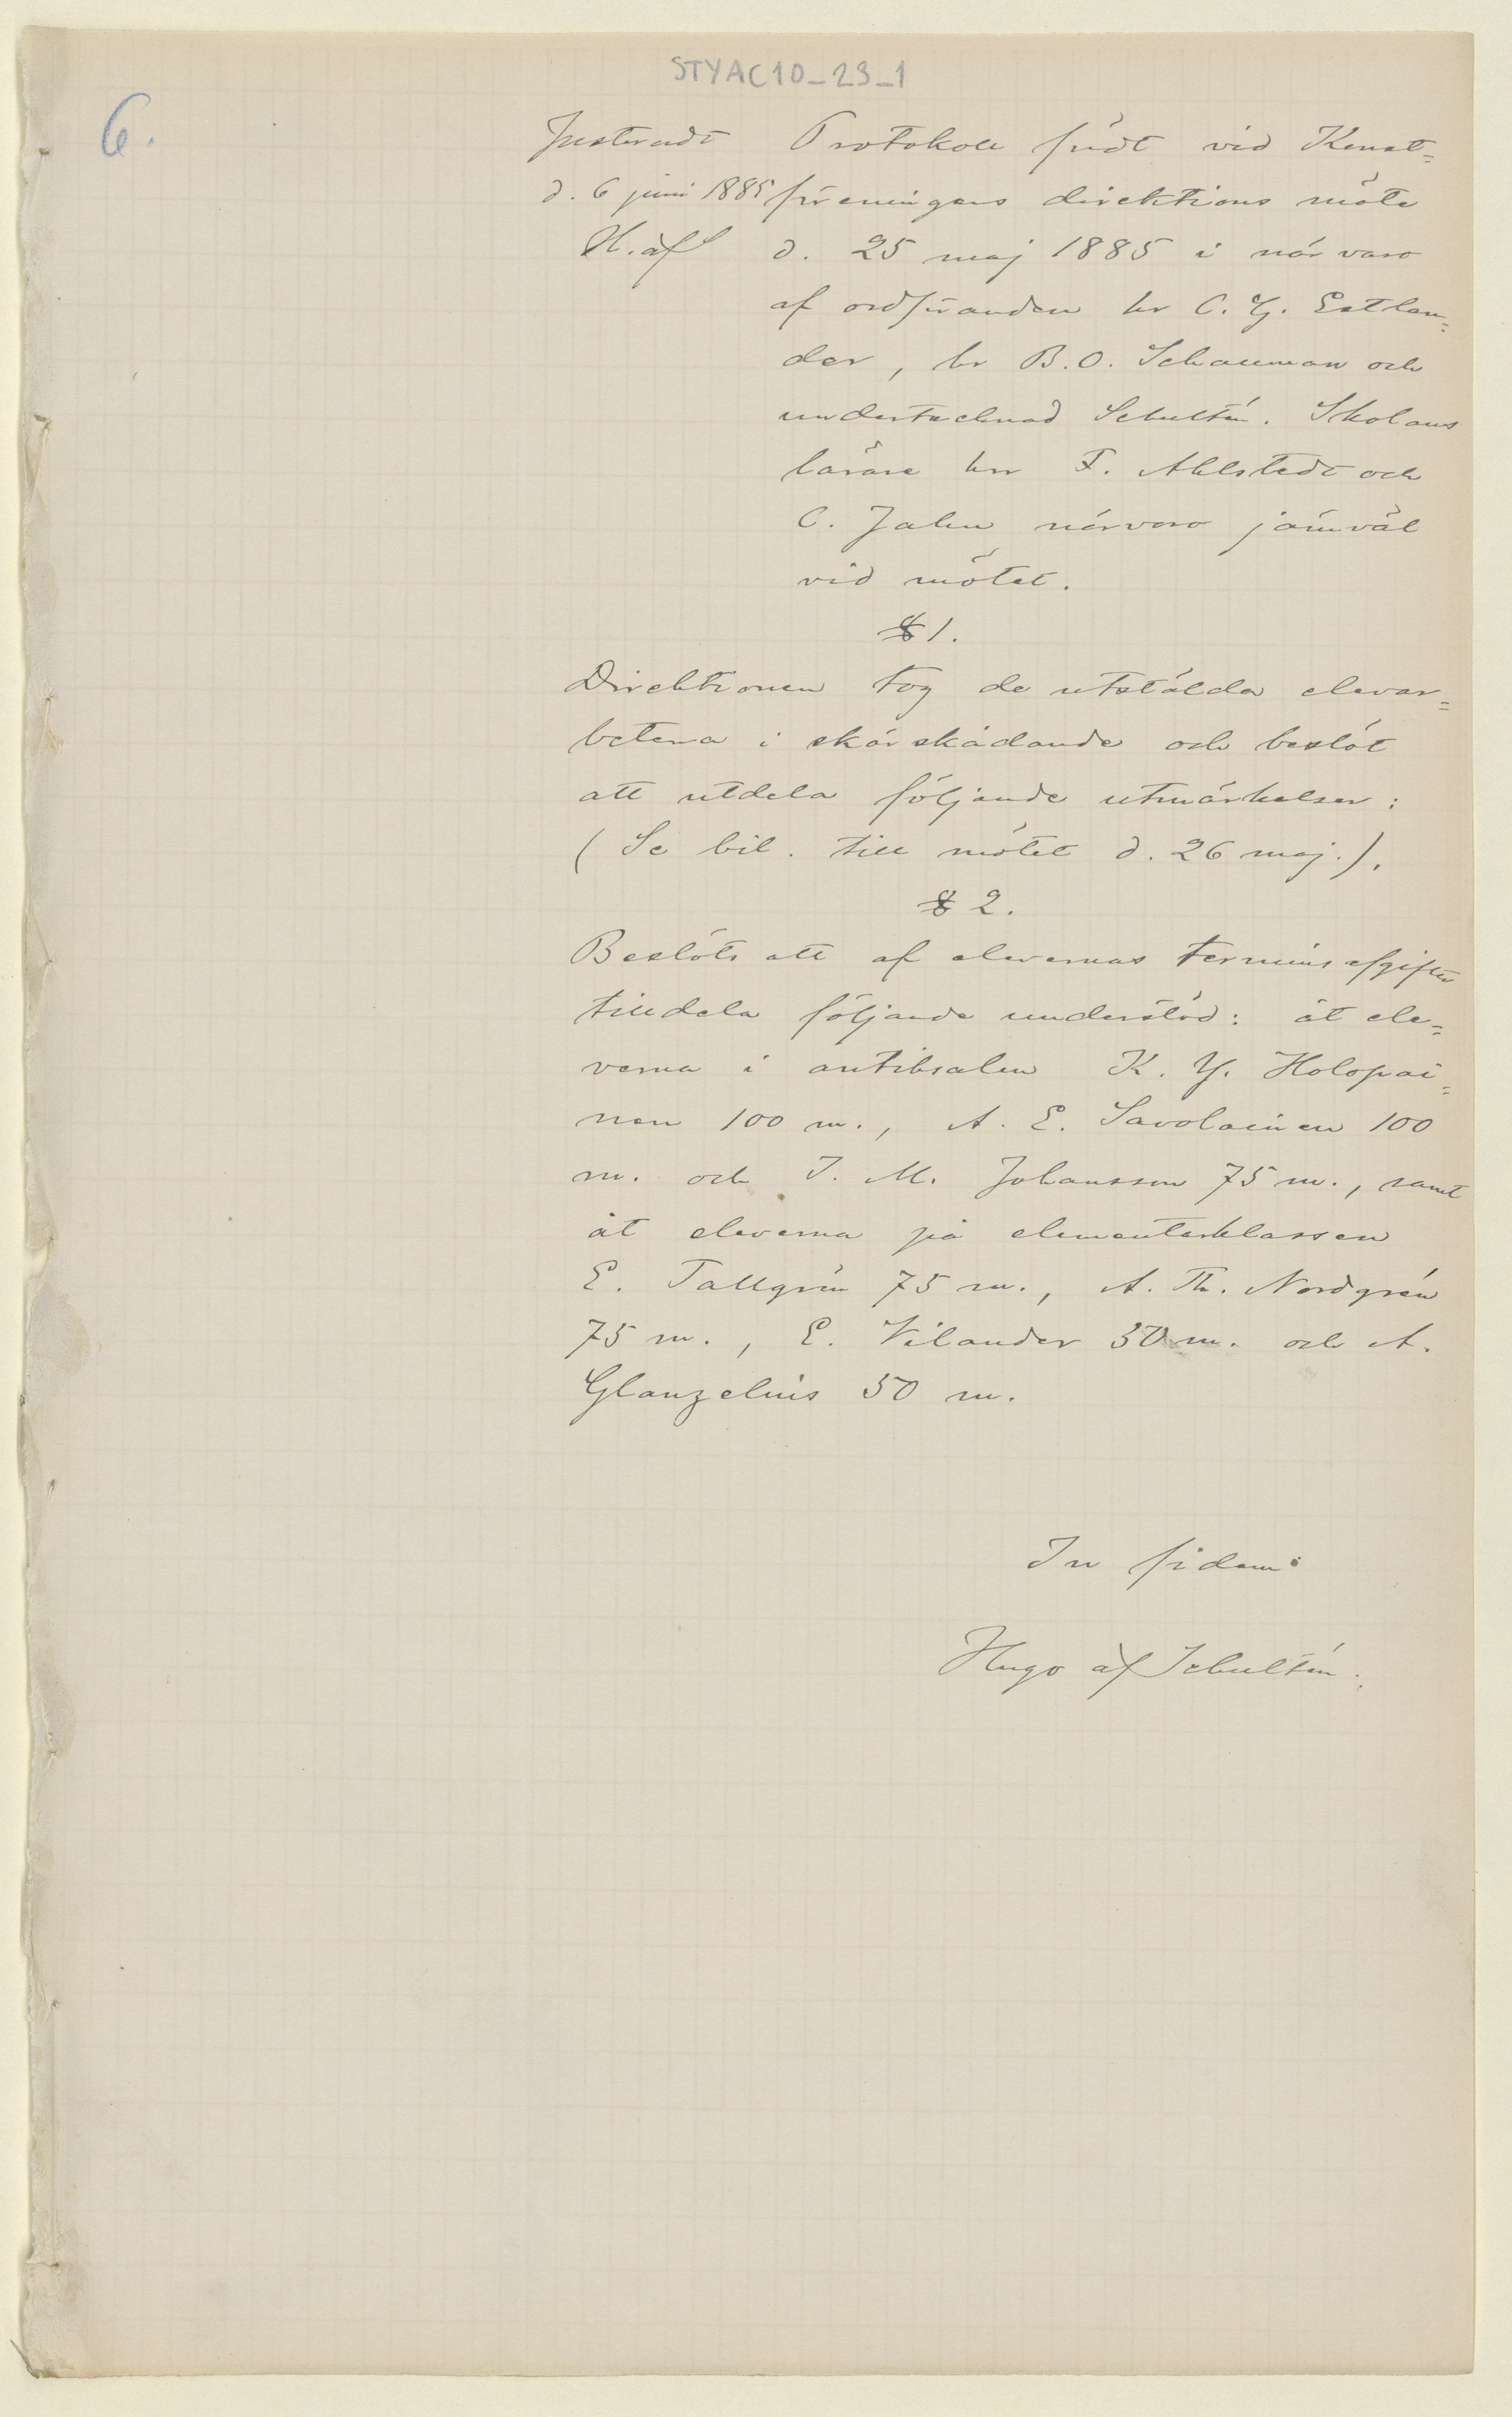 STYAC10_23_1
6.
Justeradt
d. 6 juni 1885
H. af S
Protokoll fördt vid Konst=
föreningens direktions möte
d. 25 maj 1885 i närvaro
af ordföranden hr C. G. Estlan=
der, hr B. O. Schauman och
undertecknad Schultén. Skolans
lärare hrr F. Ahlstedt och
C. Jahn närvoro jämväl
vid mötet.
§ 1.
Direktionen tog de utstälda elevar=
betena i skärskådande och beslöt
att utdela följande utmärkelser:
(Se bil. till mötet d. 26 maj.).
§ 2.
Beslöts att af elevernas terminsafgifter
tilldela följande understöd: åt ele=
verna i antiksalen K. Y. Holopai=
nen 100 m., A. E. Savolainen 100
m. och J. M. Johansson 75 m., samt
åt eleverna på elementarklassen
E. Tallgrén 75 m., A. Th. Nordgrén
75 m., E. Vilander 50 m. och A.
Glanzelius 50 m.
In fidem:
Hugo af Schultén.